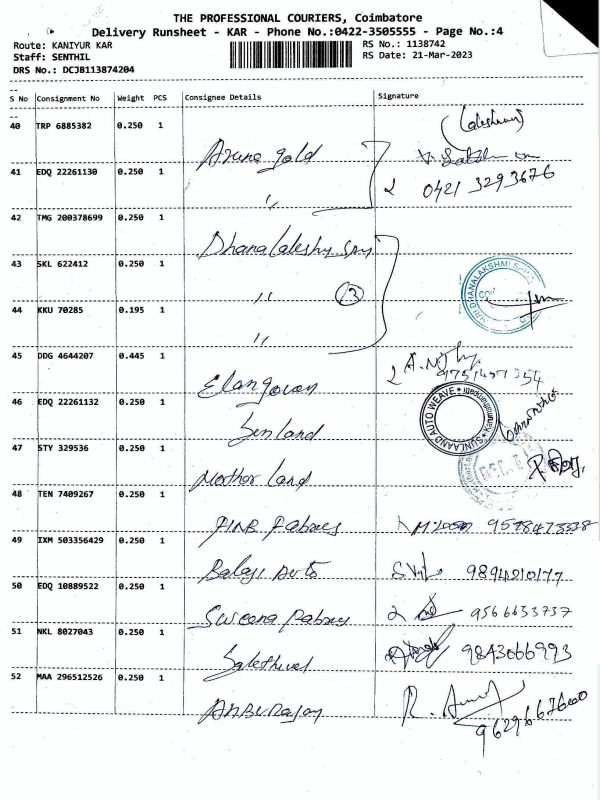 THE PROFESSIONAL COURIERS, Coimbatore
Delivery Runsheet - KAR - Phone No.:0422-3505555 - Page No.:4
Route: KANIYUR KAR RS No.: 1138742
Staff: SENTHIL RS Date: 21-Mar-2023
DRS No.: DCJB113874204
S No Consignment No Weight PCS Consignee Details Signature
40 TRP 6885382 0.250 1
Aruna gold
41 EDQ 22261130 0.250 1 2 0421 3293676
"
42 TMG 200378699 0.250 1
43 SKL 622412 0.250 1
" 3
44 KKU 70285 0.195 1
"
45 DDG 4644207 0.445 1
Elangovan
46 EDQ 22261132 0.250 1 SUNLAAND AUTO WEAVE
Sunland
47 STY 329536 0.250 1
Mother Land
48 TEN 7409267 0.250 1
49 IXM 503356429 0.250 1
Balaji Auto 9894210177
50 EDQ 10889522 0.250 1
9566633737
51 NKL 8027043 0.250 1 9843066993
Salethivel
52 MAA 296512526 0.250 1
Anburajan